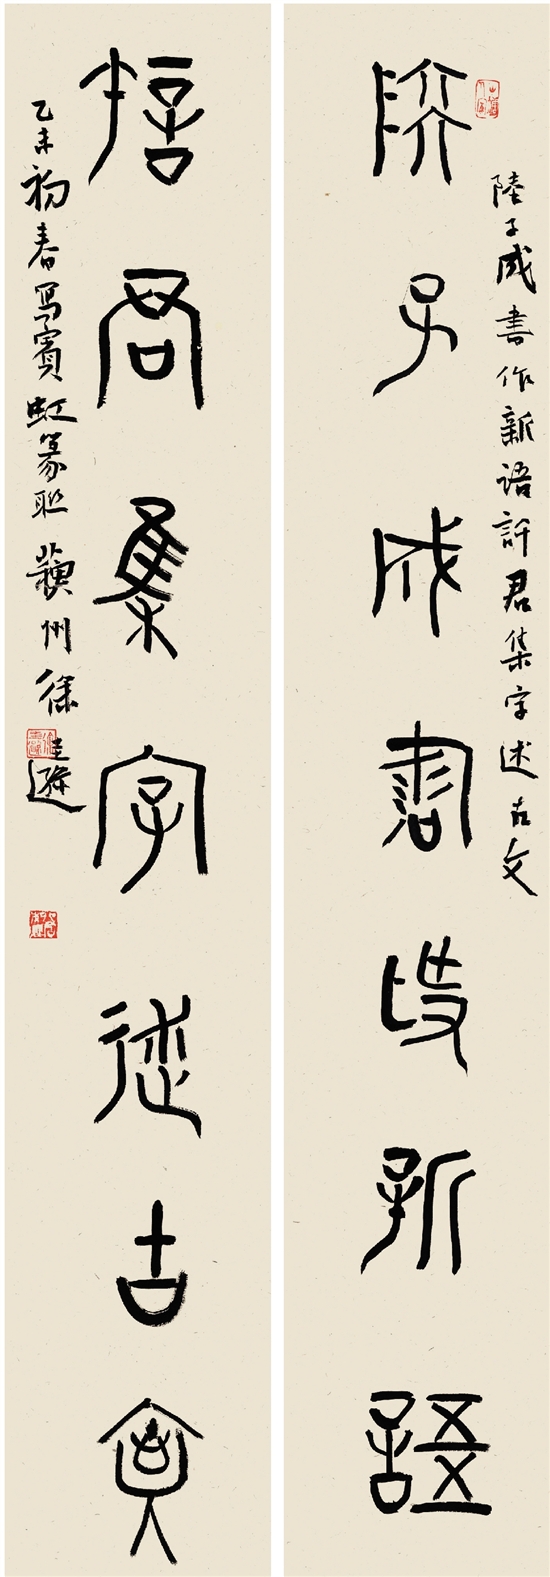 陸子成書作新語許君集字述古文
陸子成書作新語
許君集字述古文
乙未初春寫賓虹篆聯 蘓州徐圭遜